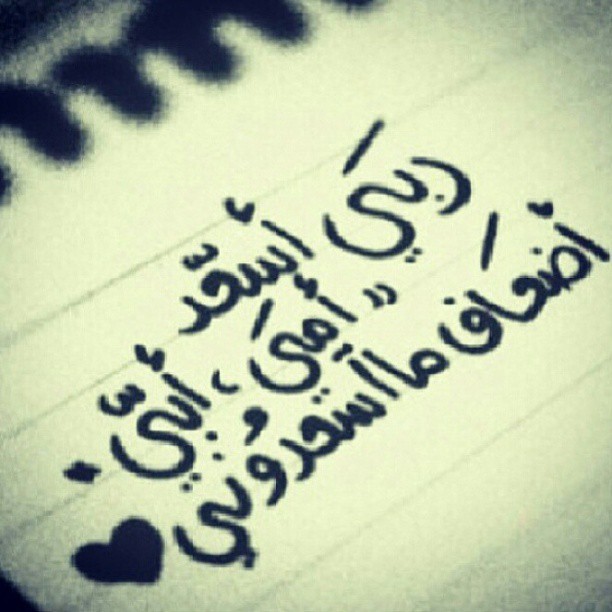 ربيَ أسعّد
" أميَ ، أبيّ .
أضعاف ما أسعدوُني ♥